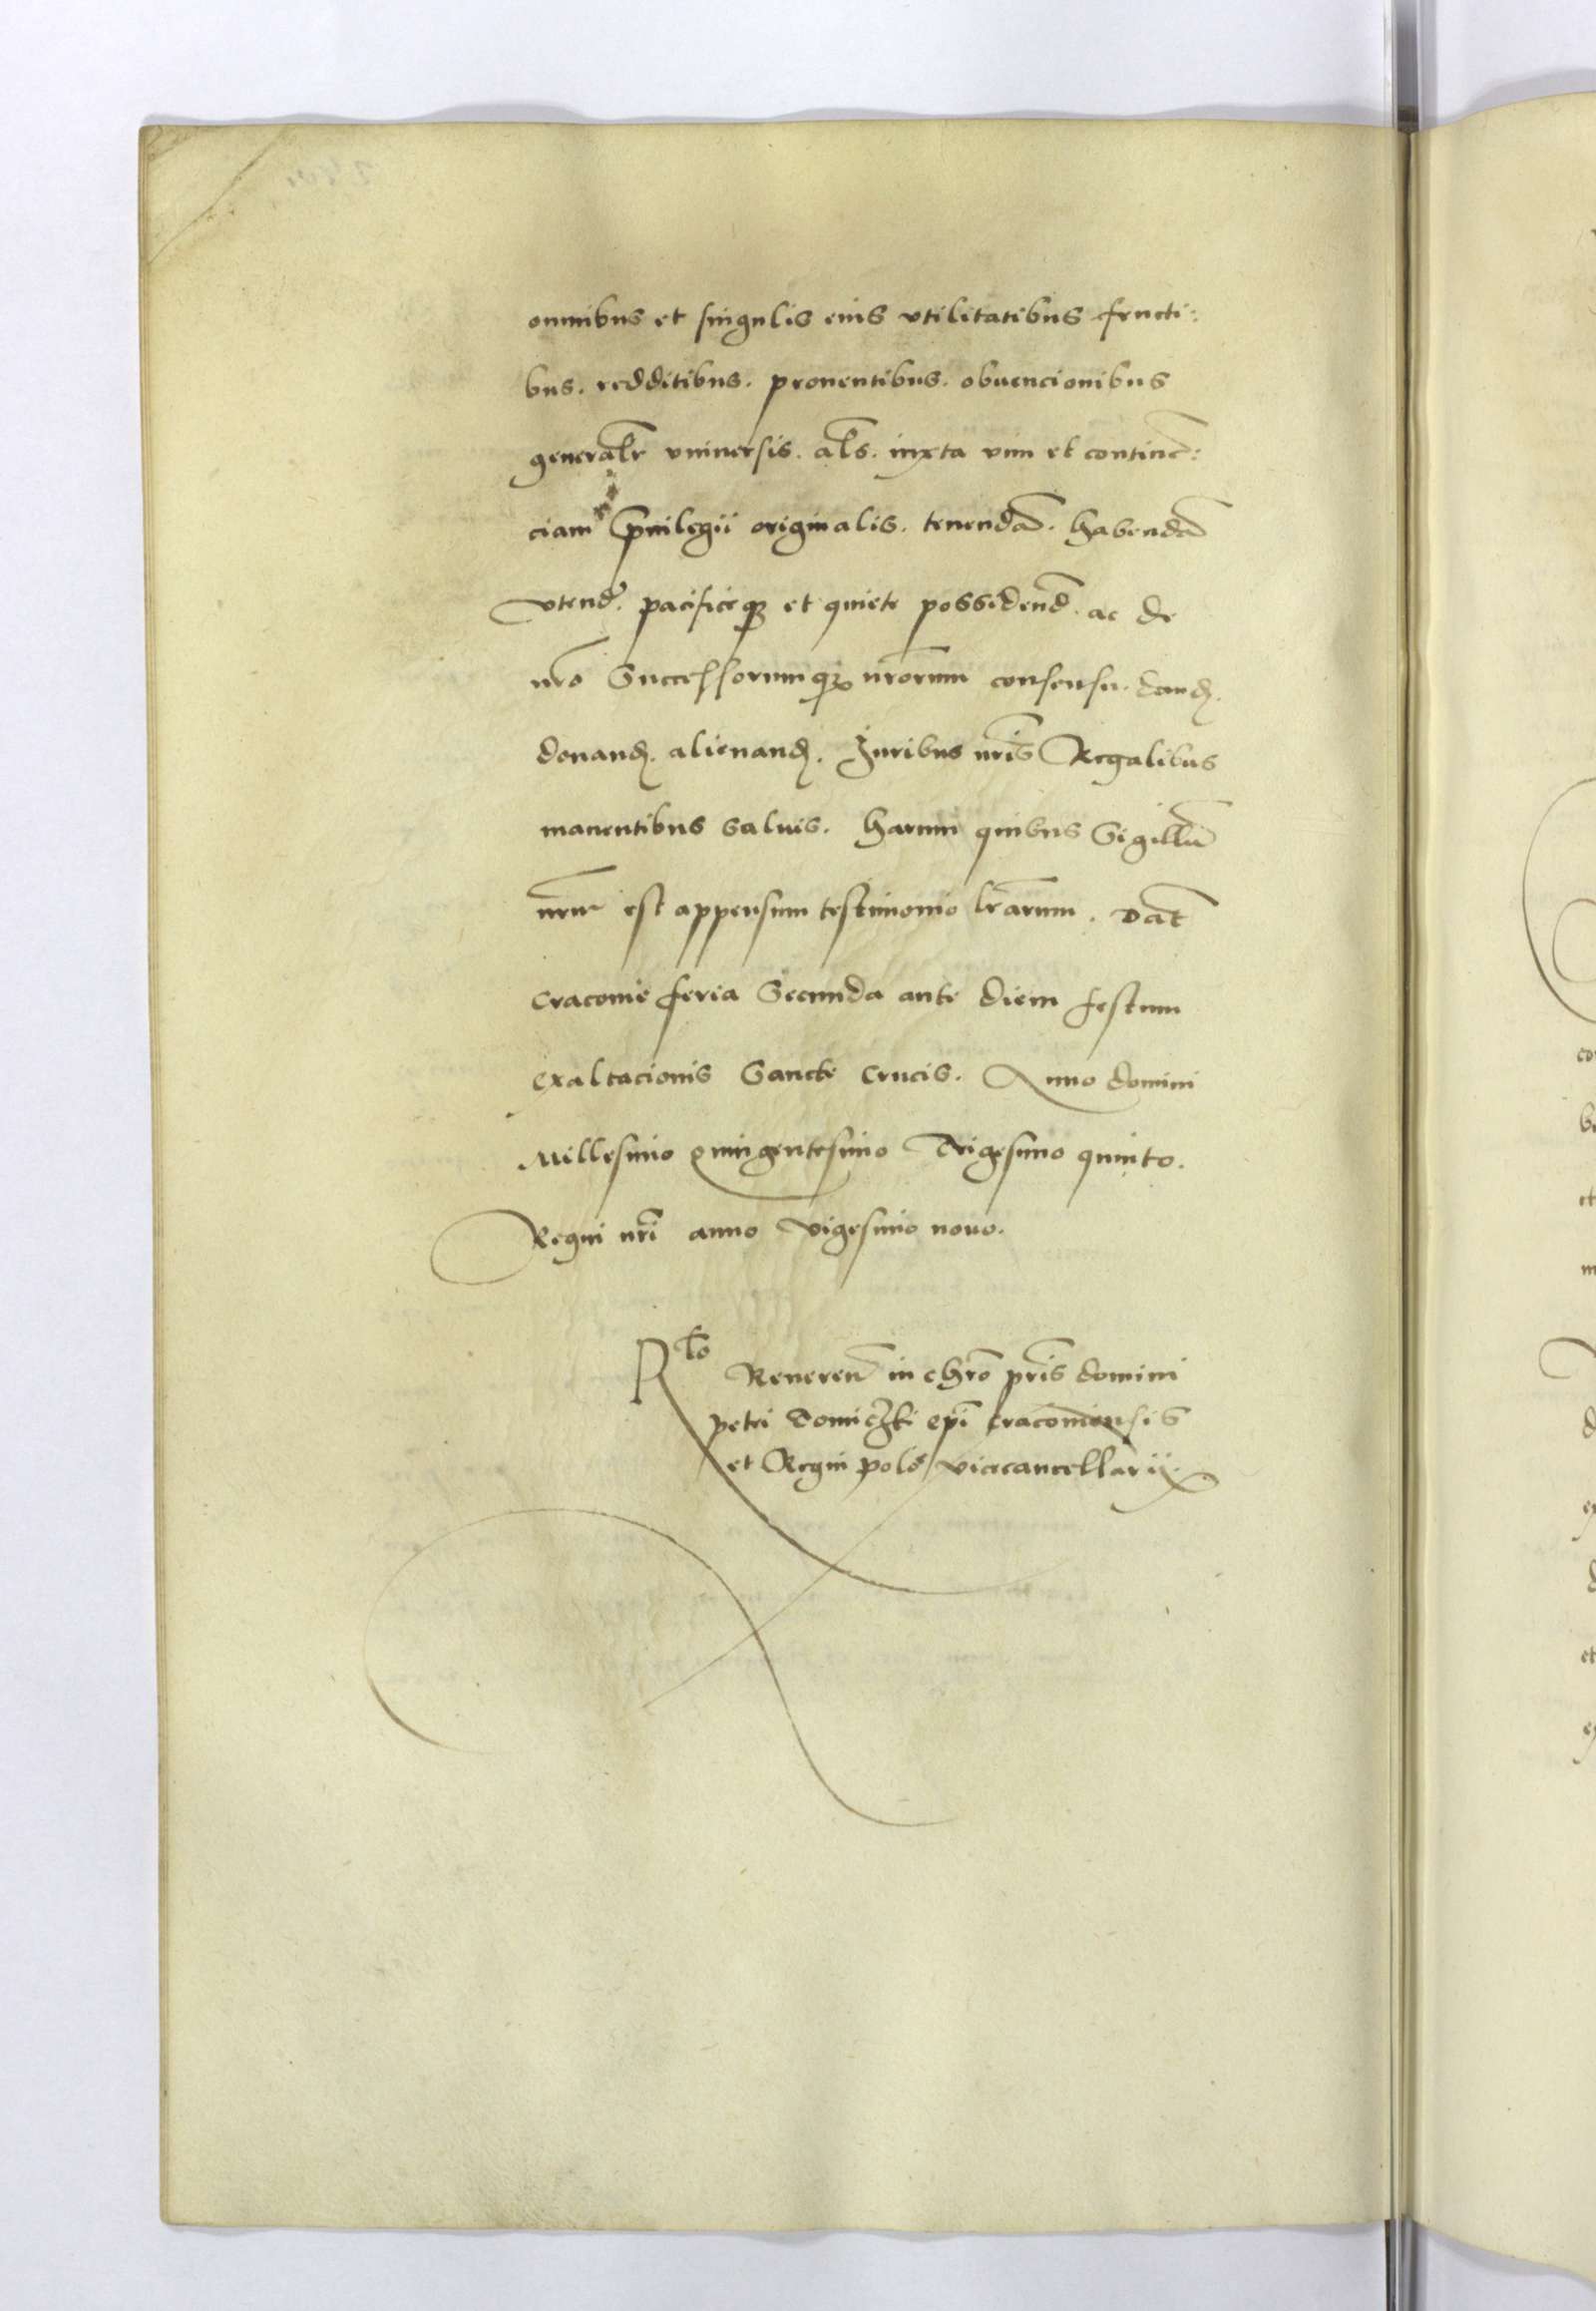 omnibus et singulis eius vtilitatibus fructi:
bus. redditibus. prouentibus. obuencionibus
generalr vniuersis. als. iuxta vim et continē:
ciam priuilegii originalis. tenendā. habendā
vtend. pacificeqꝫ et quiete possidend. ac de
nr̄o Successorumqꝫ nr̄orum consensu. dand.
donand. alienand. Iuribus nr̄is Regalibus
manentibus saluis. Harum quibus Sigillū
nr̄m est appensum testimonio lr̄arum. Dat̄
Cracouie feria Secunda ante diem festum
exaltacionis Sancte Crucis. Anno domini
Millesimo quingentesimo Trigesimo quinto.
Regni nr̄i anno vigesimo nouo.
Rlo Reueren in chr̄o pr̄is domini
petri Tomiczki ep̄i Cracouiensis
et Regni polo vicecancellarij.